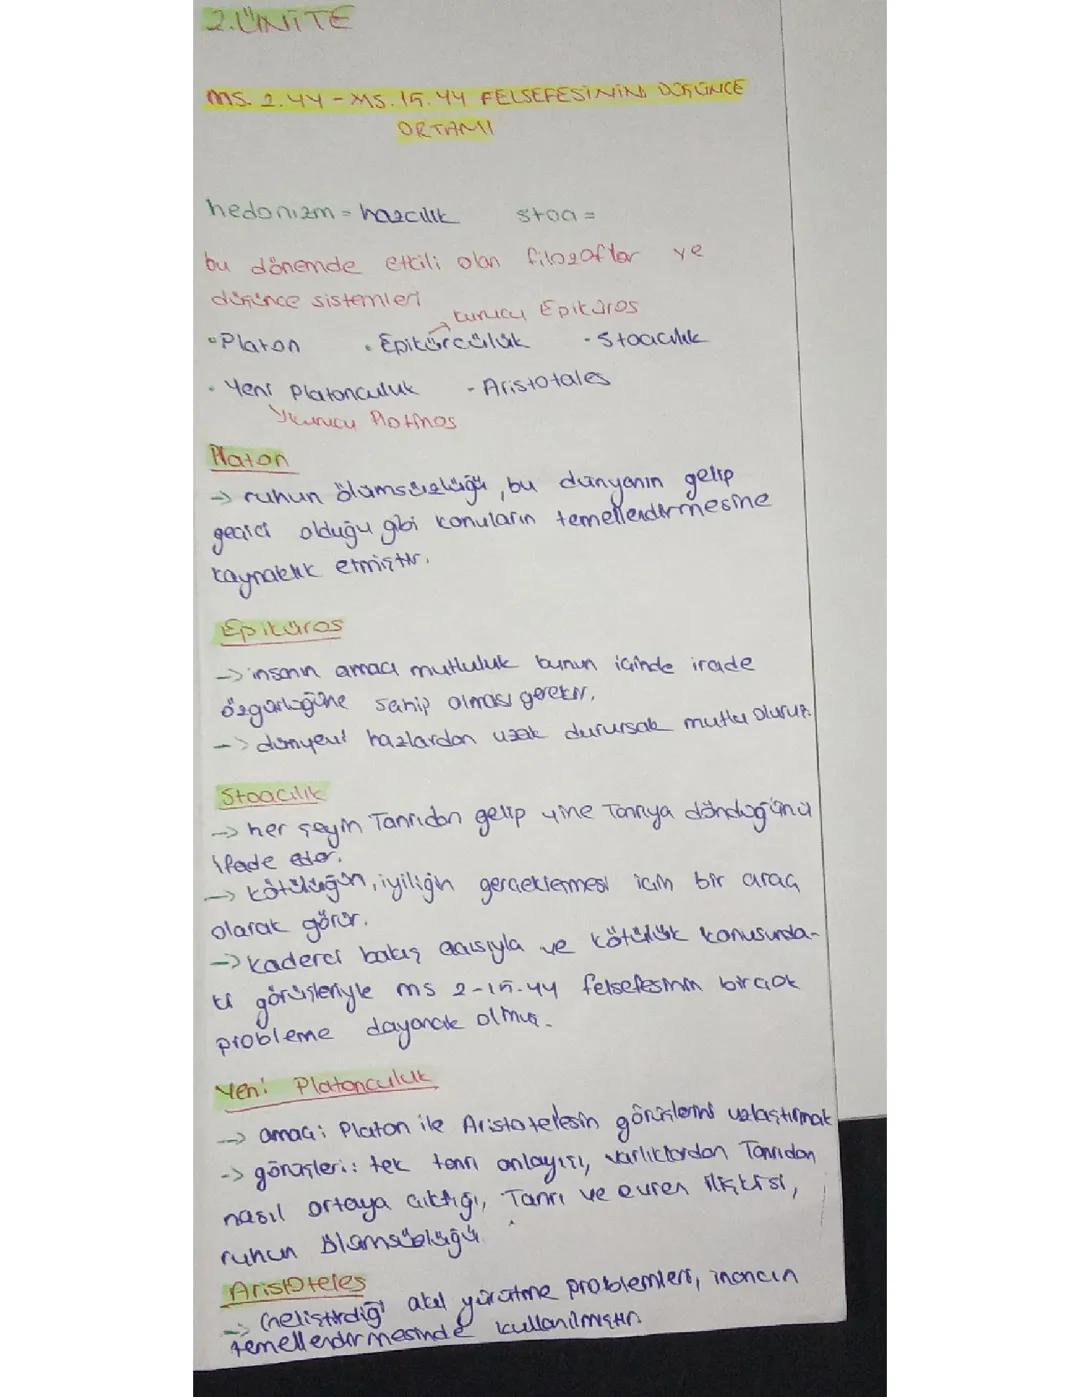 2.ÜNİTE
MS. 2.YY - MS. 15.YY FELSEFESİNİN DÜŞÜNCE
ORTAMI
hedonizm = hazcılık stoa =
bu dönemde etkili olan filozoflar ve
düşünce sistemleri
kurucu Epiküros
• Platon • Epikürcülük - Stoacılık
• Yeni Platonculuk - Aristotales
kurucu Plotinos
Platon
→ ruhun ölümsüzlüğü, bu dünyanın gelip
geçici olduğu gibi konuların temellendirmesine
kaynaklık etmiştir.
Epiküros
→ insanın amacı mutluluk bunun içinde irade
özgürlüğüne sahip olması gerekir.
→ dünyevi hazlardan uzak durursak mutlu oluruz.
Stoacılık
→ her şeyin Tanrıdan gelip yine Tanrıya döndüğünü
ifade eder.
→ kötülüğün, iyiliğin gerçekleşmesi için bir araç
olarak görür.
→ kaderci bakış açısıyla ve kötülük konusunda-
ki görüşleriyle ms 2-15.yy felsefesinin birçok
probleme dayanak olmuş.
Yeni Platonculuk
→ amacı: Platon ile Aristotelesin görüşlerini uzlaştırmak
→ görüşleri: tek tanrı anlayışı, varlıklardan Tanrıdan
nasıl ortaya çıktığı, Tanrı ve evren ilişkisi,
ruhun ölümsüzlüğü
Aristoteles
→ Geliştirdiği akıl yürütme problemleri, inancın
temellendirmesinde kullanılmıştır.